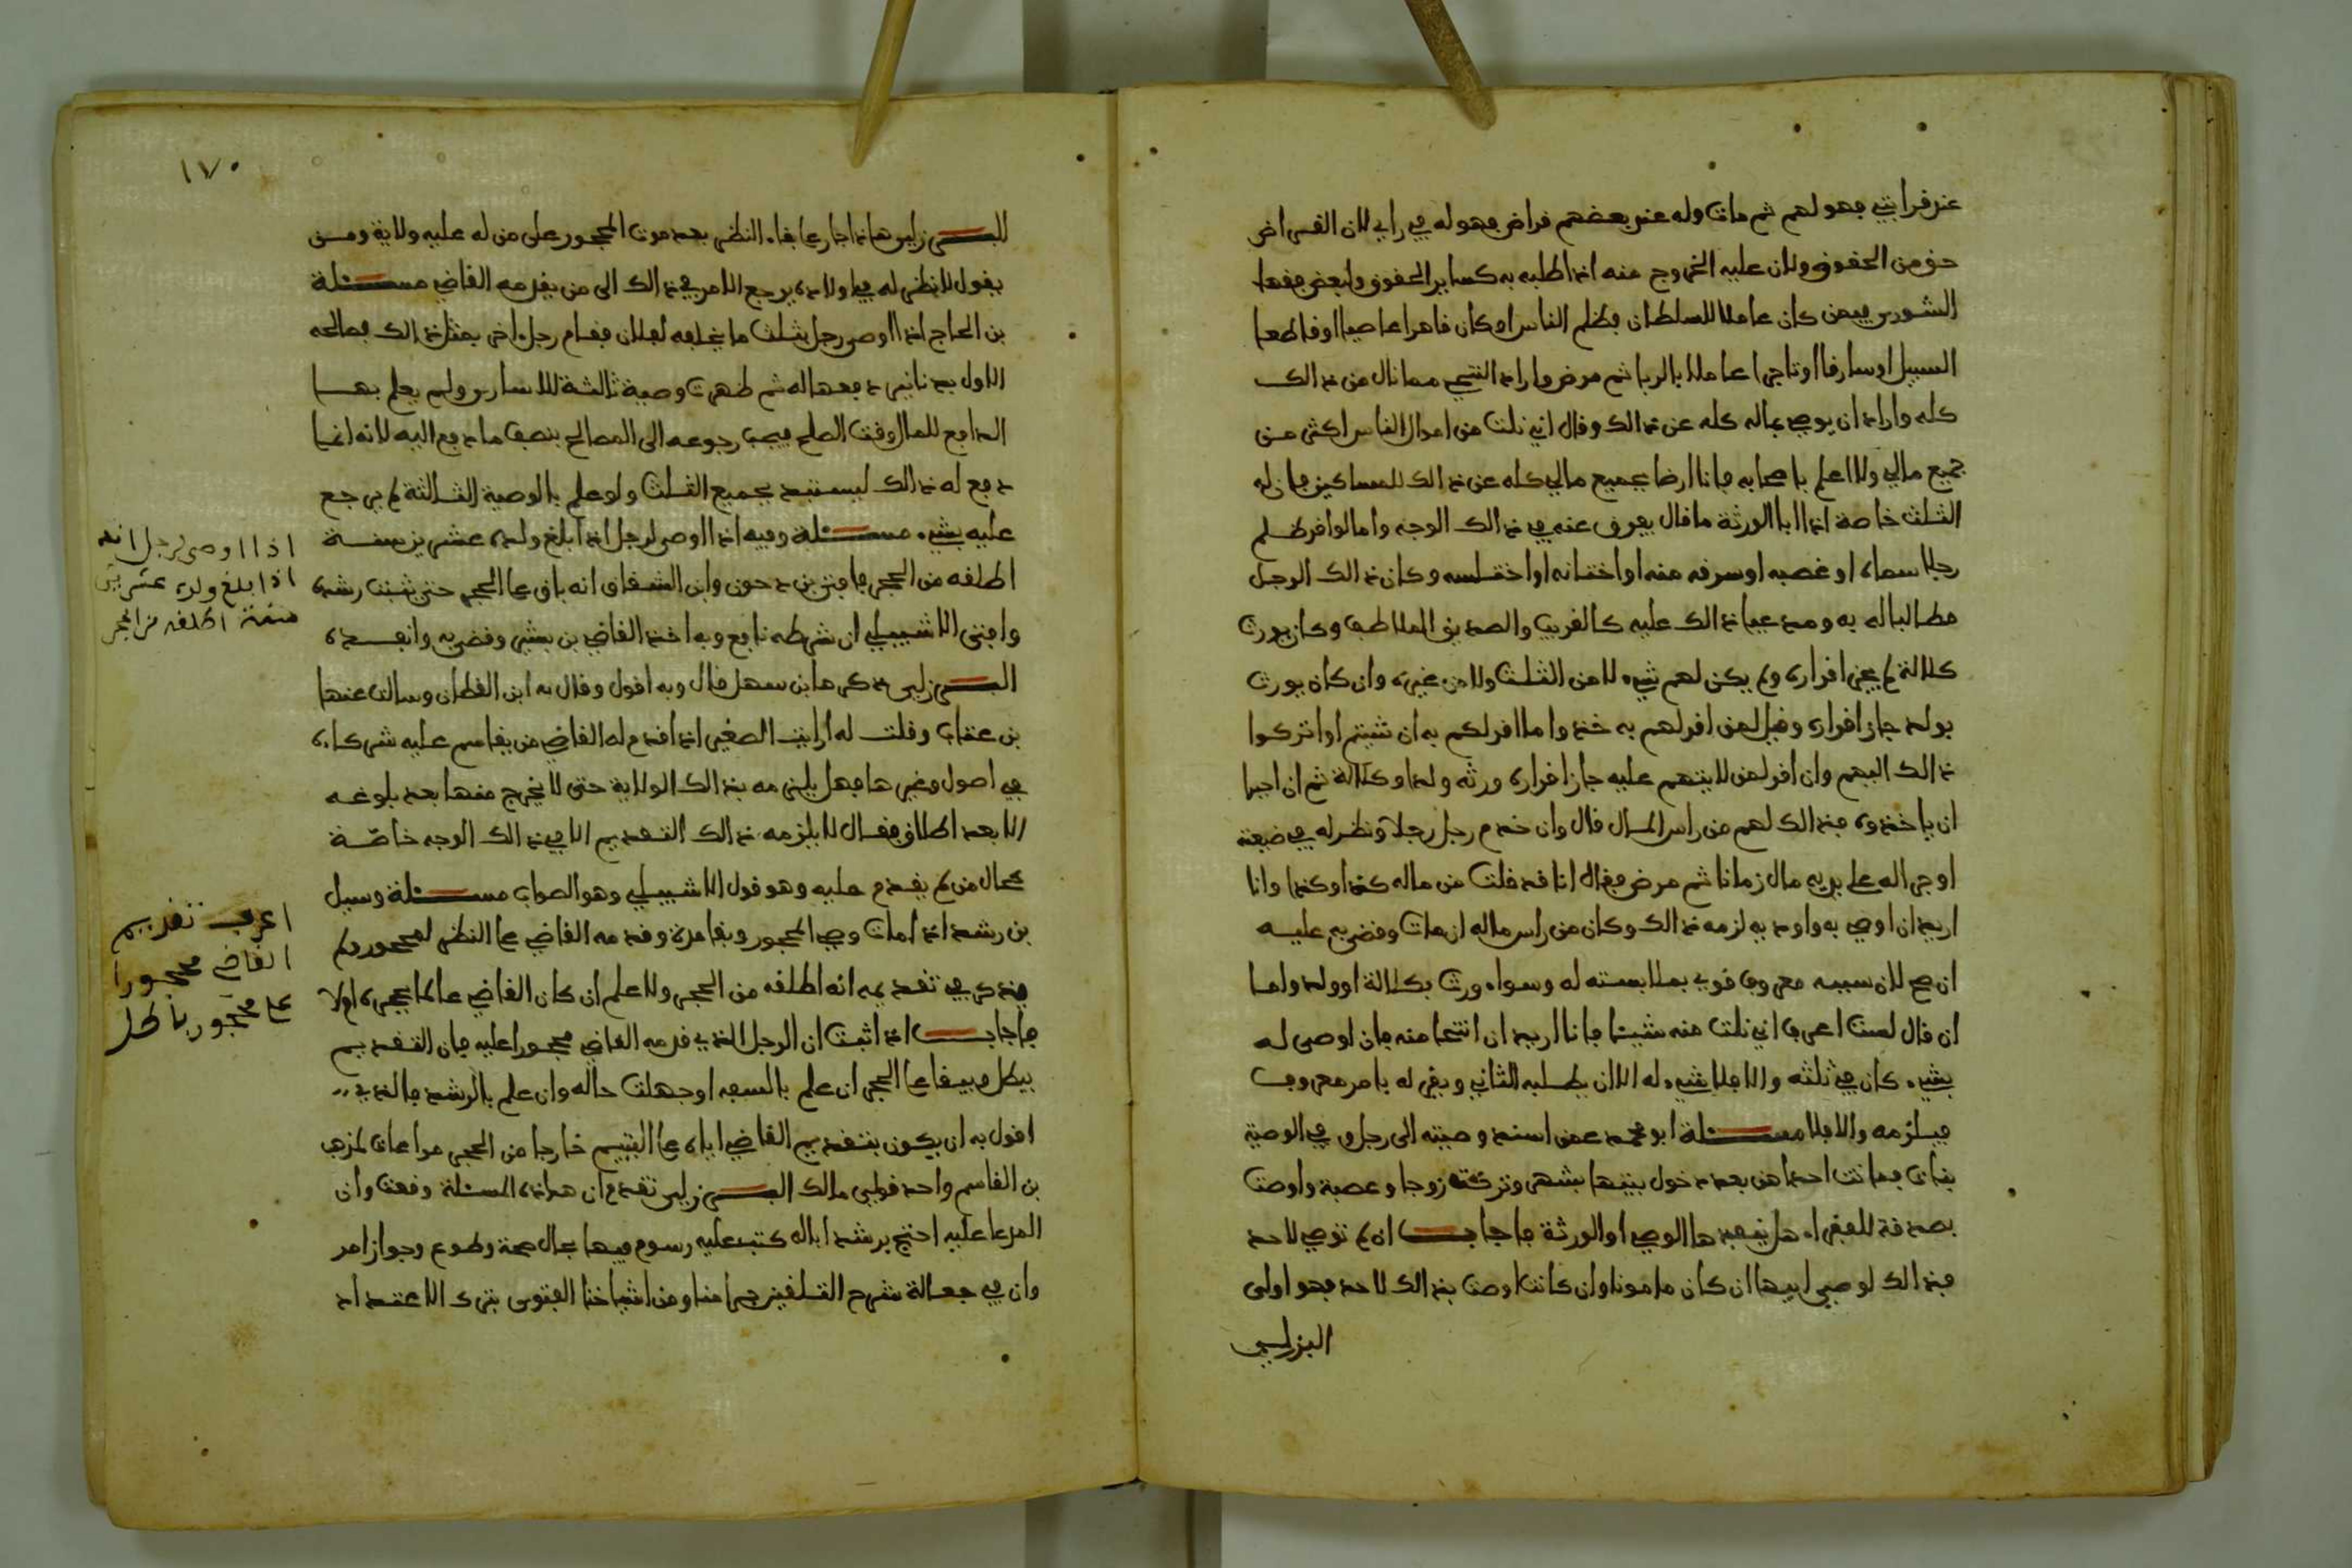 عند قرابتي فهو لهم ثم مات وله عند بعضهم قراض فهو له في رايي لان القراض
حق من الحقوق ولان عليه الخروج منه اذا طلبه به كساير الحقوق ولبعض فقها
الشورى فيمن كان عاملا للسلطان فظلم الناس او كان قاهرا عاصيا او قاطعا
السبيل او سارقا او تاجرا عاملا بالربا ثم مرض واراد التنحي مما نال من ذالك
كله واراد ان يوصي بماله كله عن ذالك وقال اني نلت من اموال الناس اكثر من
جميع مالي ولا اعلم باصحابه فانا ارضا بجميع مالي كله عن ذالك للمساكين فان له
الثلث خاصة اذا ابا الورثة ما قال يعرف عنه في ذالك الوجه واما لو اقر بظلم
رجلا سماه او غصبه او سرقه منه او اختانه او اختلسه وكان ذالك الرجل
مطالبا له به ومدعيا ذالك عليه كالقريب والصديق الملاطف وكان يورث
كلالة لم يجز اقراره ولم يكن لهم شيء لا من الثلث ولا من غيره وان كان يورث
بولد جاز اقراره وقيل لمن اقر لهم به خذوا ما اقر لكم به ان شيتم او اتركوا
ذالك اليهم وان اقر لمن لا يتهم عليه جاز اقراره ورثه ولد او كلالة ثم ان احبوا
ان ياخذوه فذالك لهم من راس المال قال وان خدم رجل رجلا ونظر له في ضيعته
او جرا له على يديه مال زمانا ثم مرض فقال انا قد فلت من ماله كذا وكذا وانا
اريد ان اوصي به واودبه لزمه ذالك وكان من راس ماله ان مات وقضي به عليه
ان صح لان سببه معروف قوي بملابسته له وسواء ورث بكلالة او ولد واما
ان قال لست اعرف اني نلت منه شيئا فانا اريد ان اتنحا منه فان اوصى له
بشيء كان في ثلثه والا فلا شيء له الا ان يطلبه الثاني ويقر له بامر معروف
فيلزمه والا فلا مسئلة ابو محمد عمن اسند وصيته الى رجل وفي الوصية
بنات فماتت احداهن بعد دخول بيتها بشهر وتركت زوجا وعصبة واوصت
بصدقة للفقراء هل ينفذها الوصي او الورثة فاجاب ان لم توصي لاحد
فذالك لوصي ابيها ان كان مامونا وان كانت اوصت بذالك لاحد فهو اولى
البرزلي
١٧٠
البرزلي هاذا جار على بقاء النظر بعد موت المحجور على من له عليه ولاية ومن
يقول لا نظر له في اولاده يرجع الامر في ذالك الى من يقدمه القاضي مسئلة
بن الحاج اذا اوصى رجل بثلث ما يخلفه لفلان فقام رجل اخر بمثل ذالك فصالحه
الاول بدنانير دفعها له ثم ظهرت وصية ثالثة للاسارى ولم يعلم بها
الدافع للمال وقت الصلح فيجب رجوعه الى المصالح بنصف ما دفع اليه لانه انما
دفع له ذالك ليستبد بجميع الثلث ولو علم بالوصية الثالثة لم يرجع
عليه بشيء مسئلة وفيه اذا اوصى لرجل اذا بلغ ولده عشرين سنة
اطلقه من الحجر فافتى بن دحون وابن الشقاق انه باق على الحجر حتى يثبت رشده
وافتى الاشبيلي ان شرطه نافع وبه اخذ القاضي بن بشير وقضى به وانفذه
البرزلي ذكرها بن سهل قال وبه اقول وقال به ابن القطان وسالت عنها
بن عتاب وقلت له ارايت الصغير اذا قدم له القاضي من يقاسم عليه شركاءه
في اصول وغيرها فهل يلزمه بذالك الولاية حتى لا يخرج منها بعد بلوغه
الا بعد اطلاق فقال لا يلزمه ذالك التقديم الا في ذالك الوجه خاصة
بحال من لم يقدم عليه وهو قول الاشبيلي وهو الصواب مسئلة وسيل
بن رشد اذا مات وصي المحجور وبقا مدة وقدمه القاضي على النظر لمحجور ولم
يذكر في تقديمه انه اطلقه من الحجر ولا علم ان كان القاضي عالما بحجره ام لا
فاجاب اذا ثبت ان الرجل الذي قدمه القاضي محجورا عليه فان التقديم
يبطل ويبقا على الحجر ان علم بالسفه او جهلت حاله وان علم بالرشد فالذي
اقول به ان يكون بتقديم القاضي اياه على اليتيم خارجا من الحجر مراعات لمذهب
بن القاسم واحد قولي مالك البرزلي تقدم ان هذه المسئلة وقعت وان
المدعا عليه احتج برشد اباله كتب عليه رسوم فيها بحال صحة وطوع وجواز امر
وان في جعالة شرح التلقين جرا منا ومن اشياخنا الفتوى بترك الاعتداد
اذا اوصى لرجل انه
اذا بلغ ولده عشرين
سنة اطلقه من الحجر
اعرف تقديم
القاضي محجورا
على محجور باطل